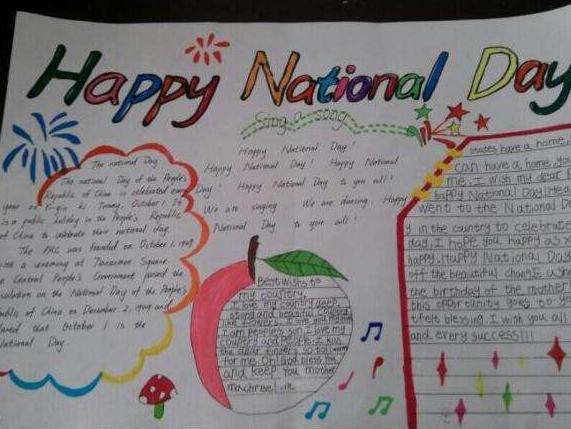 Happy National Day
Sing a song
The national Day
The national Day of the People's
Republic of China is celebrated every
year on October 1. It
is a public holiday in the People's Republic
of China to celebrate their national day.
The PRC was founded on October 1, 1949
with a ceremony at Tiananmen Square.
The Central People's Government passed the
Resolution on the National Day of the People's
Republic of China on December 2, 1949 and
declared that October 1 is the
National Day.
Happy National Day!
Happy National Day! Happy National
Day! Happy National Day to you all!
We are singing We are dancing. Happy
National Day to you all!
Best wishes to
my country.
I love my country deep,
strong and beautiful
like flowers. I love you
I am people's son. I love my
country and people. I
the
for me. Oh! God bless you
and keep you mother
have a home,
can have a home, you
me. I wish my dear
happy National Day!
went to the National Da
y in the country to celebrate
day, I hope you happy as
happy. Happy National Day
off the beautiful
the birthday of the mother
this opportunity goes to you
felt blessing. I wish you all
and every success!!!